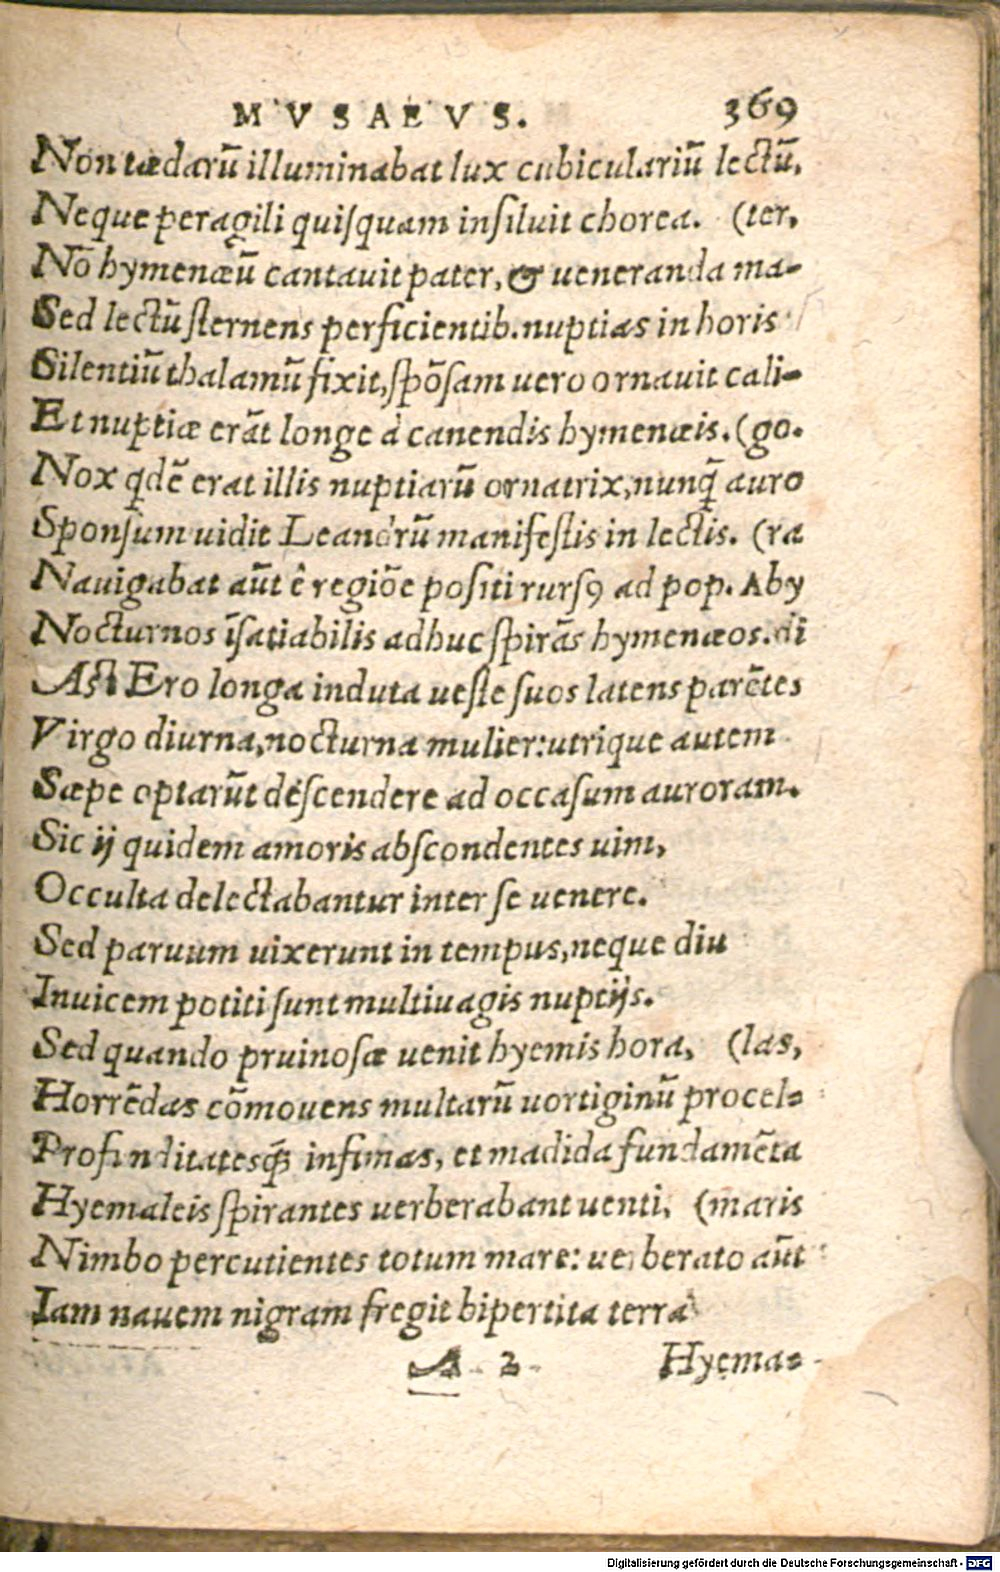 MVSAEVS. 369
Non tædarũ illuminabat lux cubiculariũ lectũ,
Neque peragili quiſquam inſiluit chorea. (ter,
Nõ hymenæũ cantauit pater, & ueneranda ma-
Sed lectũ ſternens perficientib. nuptias in horis
Silentiũ thalamũ fixit, ſpõſam uero ornauit cali-
Et nuptiæ erãt longe à canendis hymenæis. (go.
Nox qdẽ erat illis nuptiarũ ornatrix, nunq̃ auro
Sponſum uidit Leandrũ manifeſtis in lectis. (ra
Nauigabat aũt ẽ regiõe poſiti rurſꝰ ad pop. Aby
Nocturnos ĩſatiabilis adhuc ſpirãs hymenæos. di
Aſt Ero longa induta ueſte ſuos latens parẽtes
Virgo diurna, nocturna mulier: utrique autem
Sæpe optarũt deſcendere ad occaſum auroram.
Sic ij quidem amoris abſcondentes uim,
Occulta delectabantur inter ſe uenere.
Sed paruum uixerunt in tempus, neque diu
Inuicem potiti ſunt multiuagis nuptijs.
Sed quando pruinoſæ uenit hyemis hora, (las,
Horrẽdas cõmouens multarũ uortiginũ procel-
Profunditatesq́; infimas, et madida fundamẽta
Hyemaleis ſpirantes uerberabant uenti, (maris
Nimbo percutientes totum mare: uerberato aũt
Iam nauem nigram fregit bipertita terra
A 2 Hyema-
Digitalisierung gefördert durch die Deutsche Forschungsgemeinschaft - DFG